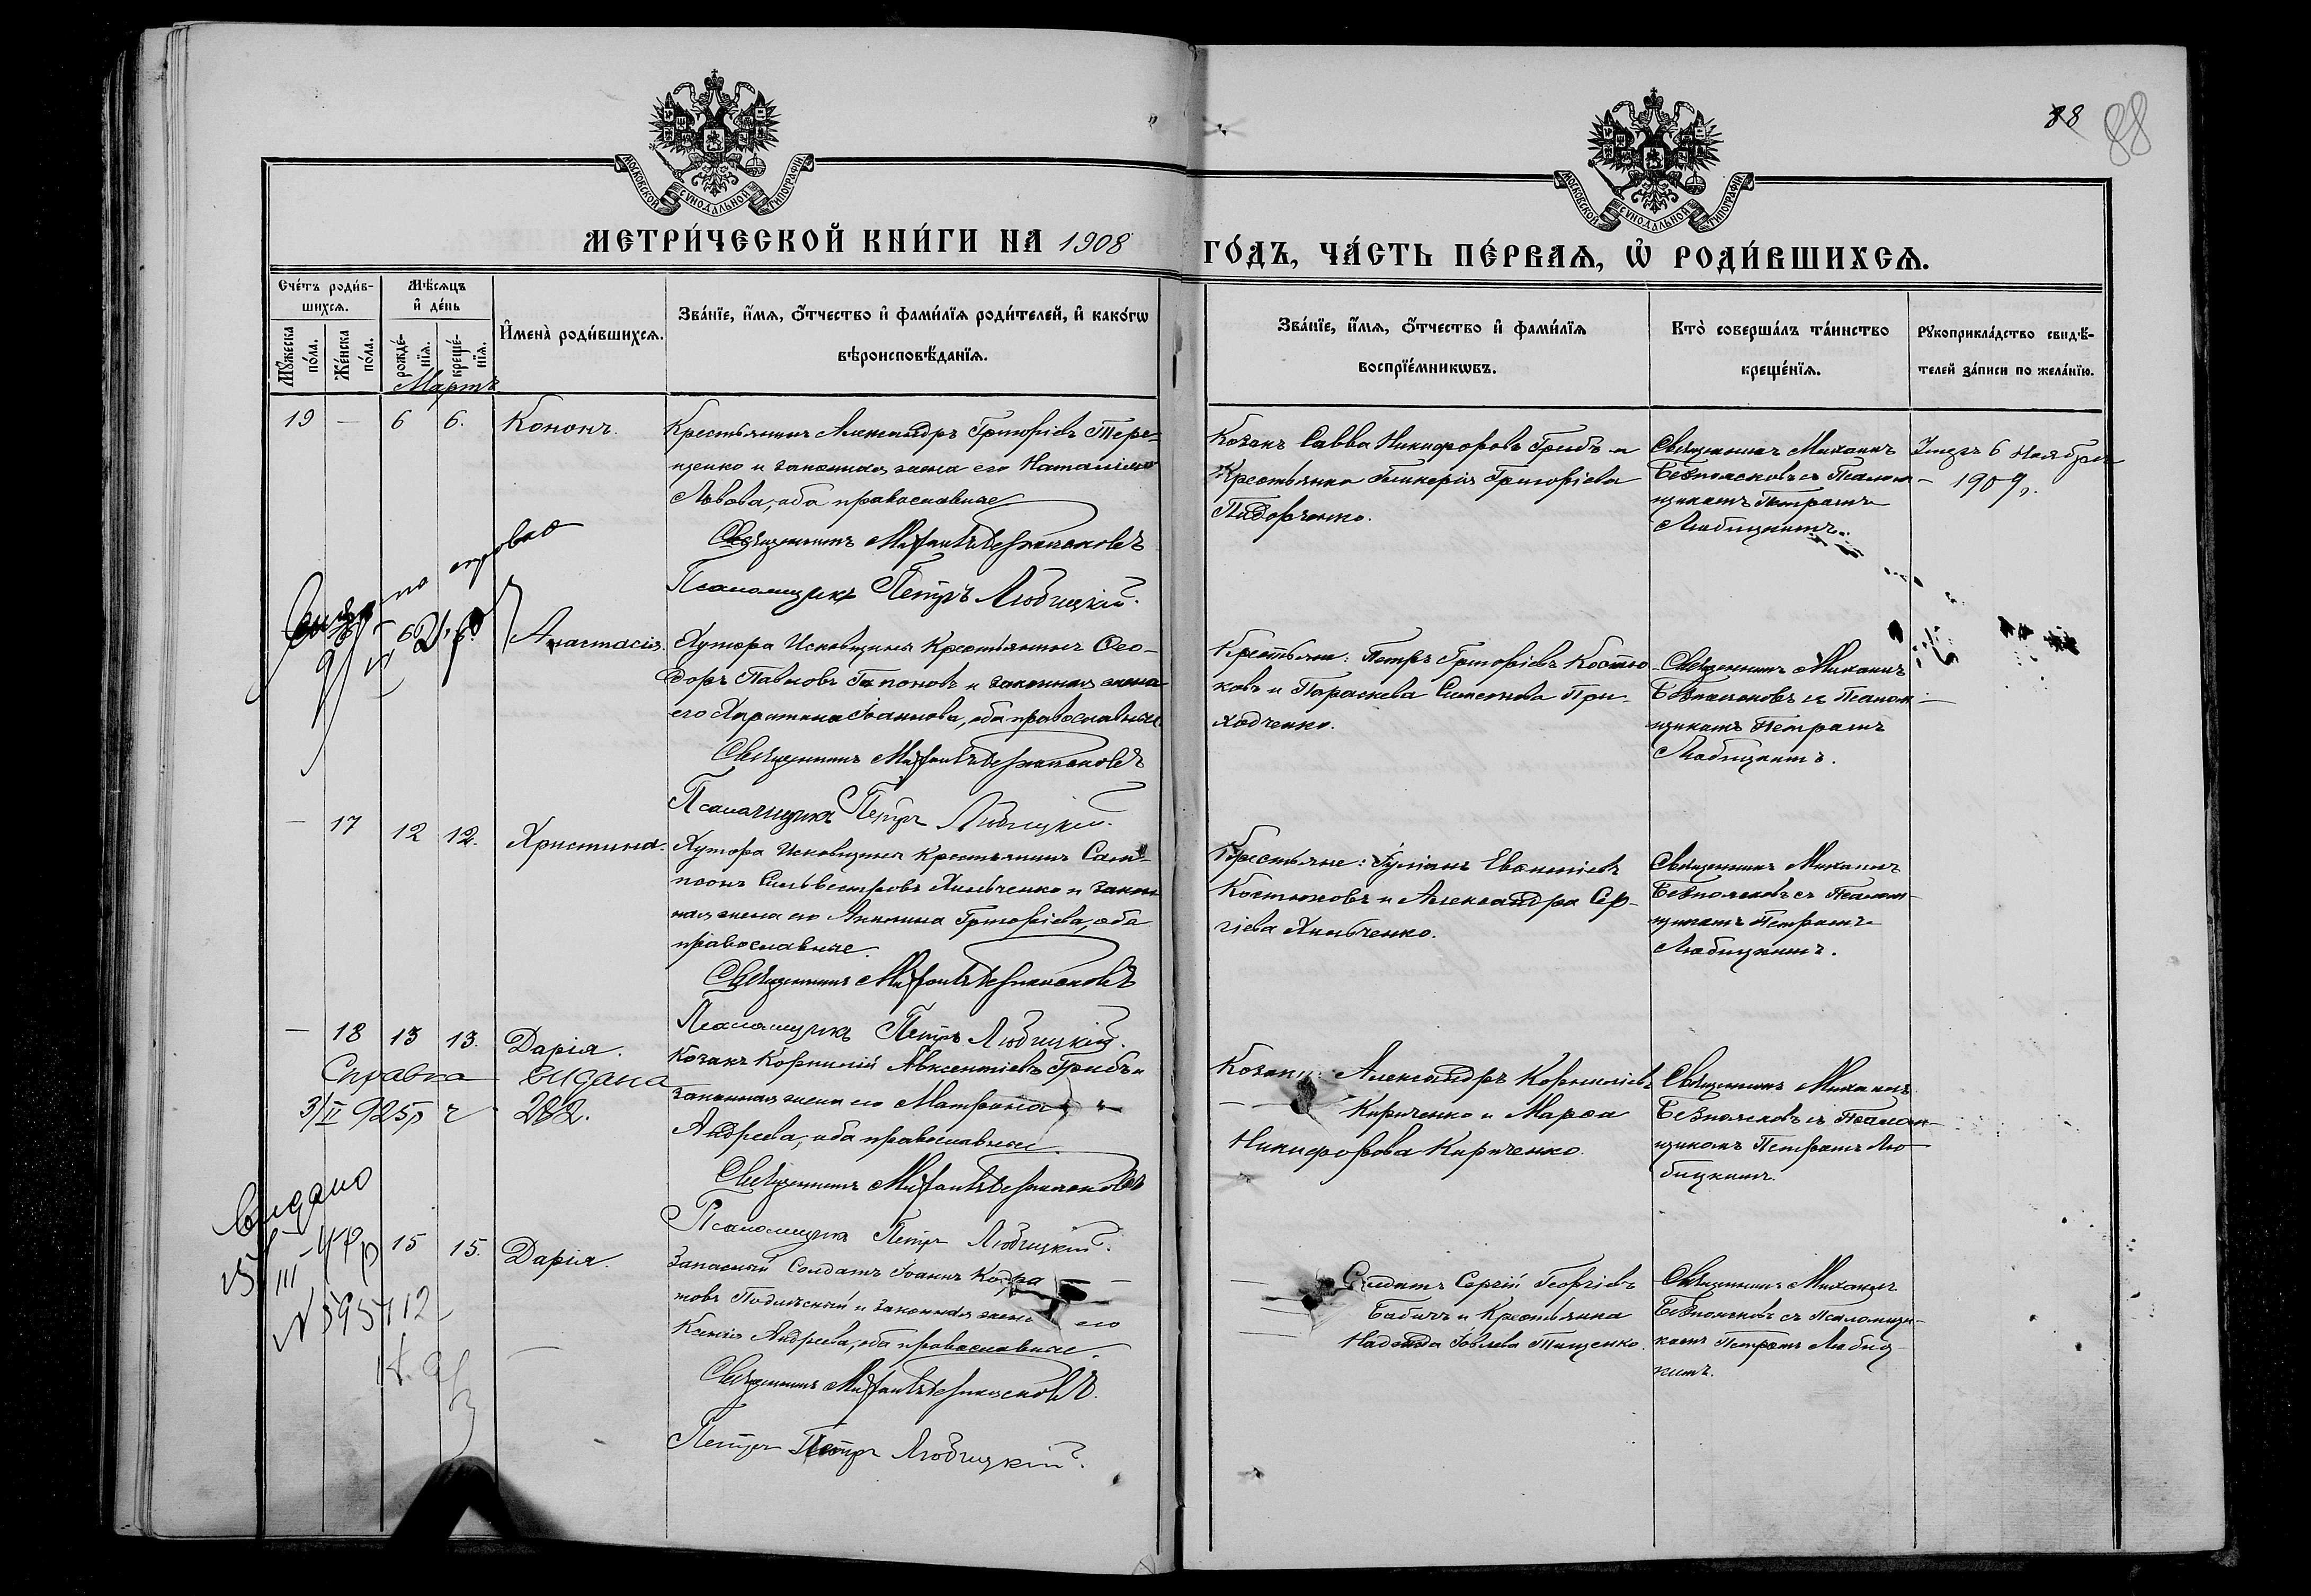 88
88
МОСКОВСКОЙ СѴНОДАЛЬНОЙ ТИПОГРАФІИ
МОСКОВСКОЙ СѴНОДАЛЬНОЙ ТИПОГРАФІИ
МЕТРИ́ЧЕСКОЙ КНИ́ГИ НА 1908
ГО́ДЪ, ЧА́СТЬ ПЕ́РВАѦ, Ѡ҆ РОДИ́ВШИХСѦ.
Сче́тъ роди́в-
шихсѧ.
Мꙋ́жеска
по́ла.
Же́нска
по́ла.
Мѣ́сѧцъ
и҆ де́нь
рожде́-
нїѧ.
креще́-
нїѧ.
И҆мена̀ роди́вшихсѧ.
Зва́нїе, и҆́мѧ, ѻ҆́тчество и҆ фами́лїѧ роди́телей, и҆ како́гѡ
вѣроисповѣ́данїѧ.
Зва́нїе, и҆́мѧ, ѻ҆́тчество и҆ фами́лїѧ
воспрїе́мникѡвъ.
Кто̀ соверша́лъ та́инство
креще́нїѧ.
Рꙋкоприкла́дство свидѣ́-
телей за́писи по жела́нїю.
Мартъ
19 — 6 6. Кононъ.
Крестьянинъ Александръ Григоріевъ Тере-
щенко и законная жена его Наталія
Львова, оба православные
Священникъ Михаилъ Безпаленковъ
Псаломщикъ Петръ Любицкій.
Козакъ Савва Никифоровъ Грибъ и
Крестьянка Гликерія Григоріева
Священникъ Михаилъ
съ Псалом-
щикомъ Петромъ
Любицкимъ.
Умеръ 6 Ноября
1909 г.
Анастасія.
Хутора Исковщина Крестьянинъ Ѳео-
доръ Павловъ Гапоновъ и законная жена
его Харитина Іоаннова, оба православные
Священникъ Михаилъ
Псаломщикъ Петръ Любицкій.
Крестьяне: Петръ Григоріевъ Костю-
ковъ и Параскева Симеонова При-
ходченко.
Священникъ Михаилъ
съ Псалом-
щикомъ Петромъ
Любицкимъ.
— 17 12 12. Христина.
Хутора Исковщина Крестьянинъ Сам-
псонъ Сильвестровъ Хильченко и закон-
ная жена его Акилина Григоріева, оба
православные.
Священникъ Михаилъ
Псаломщикъ Петръ Любицкій.
Крестьяне: Іуліанъ
Костюковъ и Александра Сер-
гіева Хильченко.
Священникъ Михаилъ
съ Псалом-
щикомъ Петромъ
Любицкимъ.
— 18 13 13. Дарія.
Справка видана
3/II 925 р ч 282.
Козакъ Корнилій Авксентіевъ Грибъ и
законная жена его Матрона
Андреева, оба православные.
Священникъ Михаилъ
Псаломщикъ Петръ Любицкій.
Козаки: Александръ Корниліевъ
Кириченко и Марѳа
Никифорова Кириченко.
Священникъ Михаилъ
съ Псалом-
щикомъ Петромъ Лю-
бицкимъ.
Видано
15 15. Дарія.
Запасный Солдатъ Іоаннъ Кондра-
товъ и законная жена его
Ксенія Андреева, оба православные.
Священникъ Михаилъ
Петръ Петръ Любицкій.
Солдатъ Сергій Георгіевъ
Бабичъ и Крестьянка
Надежда Іовлева Тищенко.
Священникъ Михаилъ
съ Псаломщи-
комъ Петромъ Любиц-
кимъ.